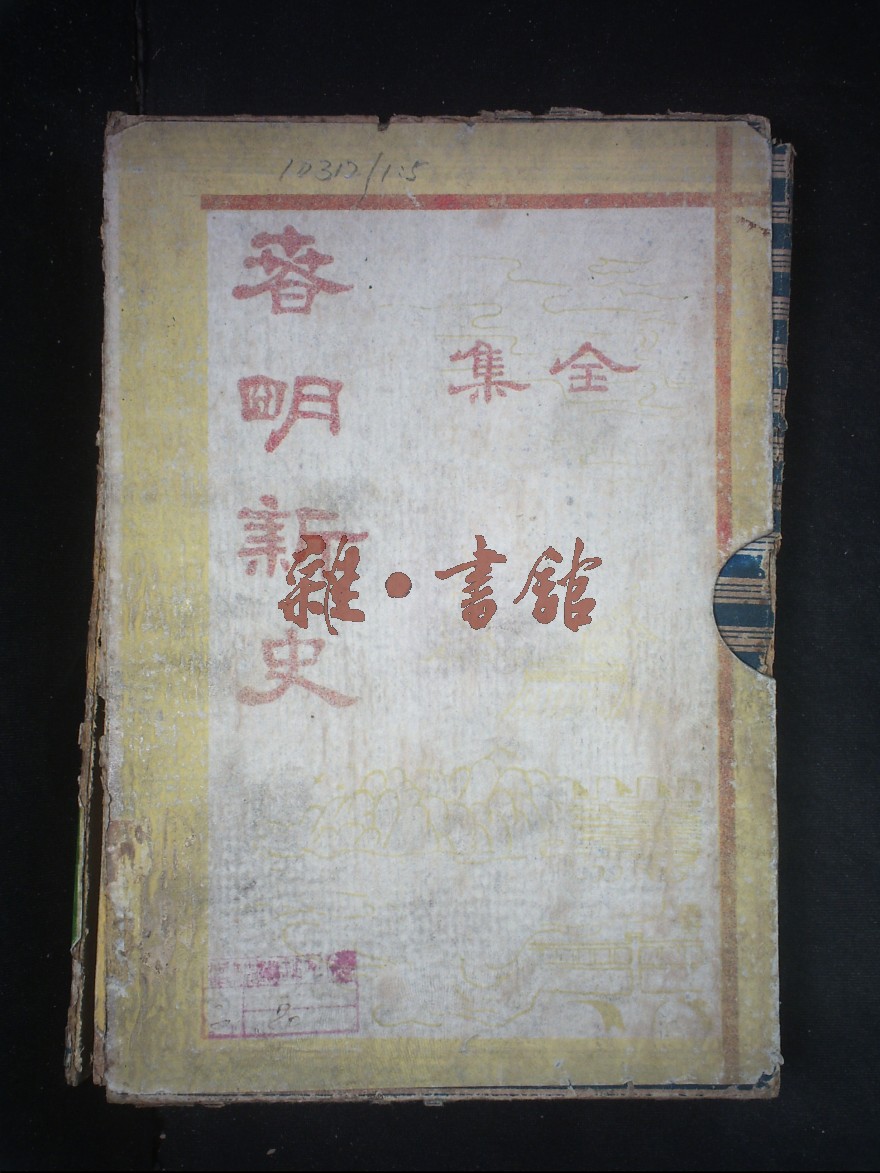 10312/1:5
春明新史
全集
雜·書館